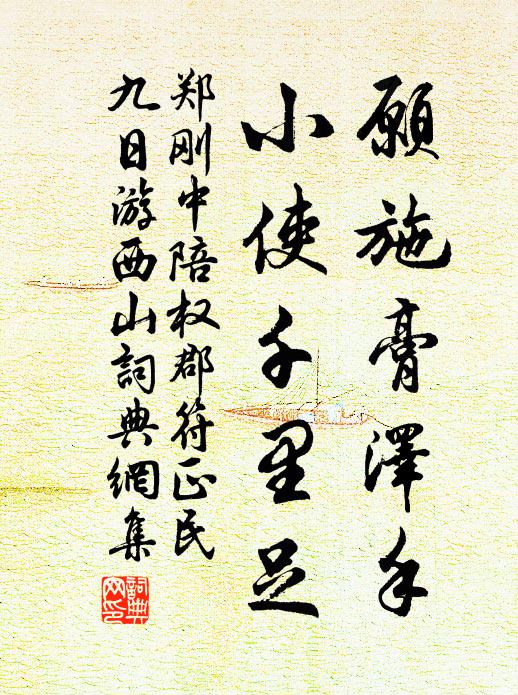 願施膏澤手
小使千里足
郑刚中陪权郡符正民
九日游西山詞典網集
詞典
网印